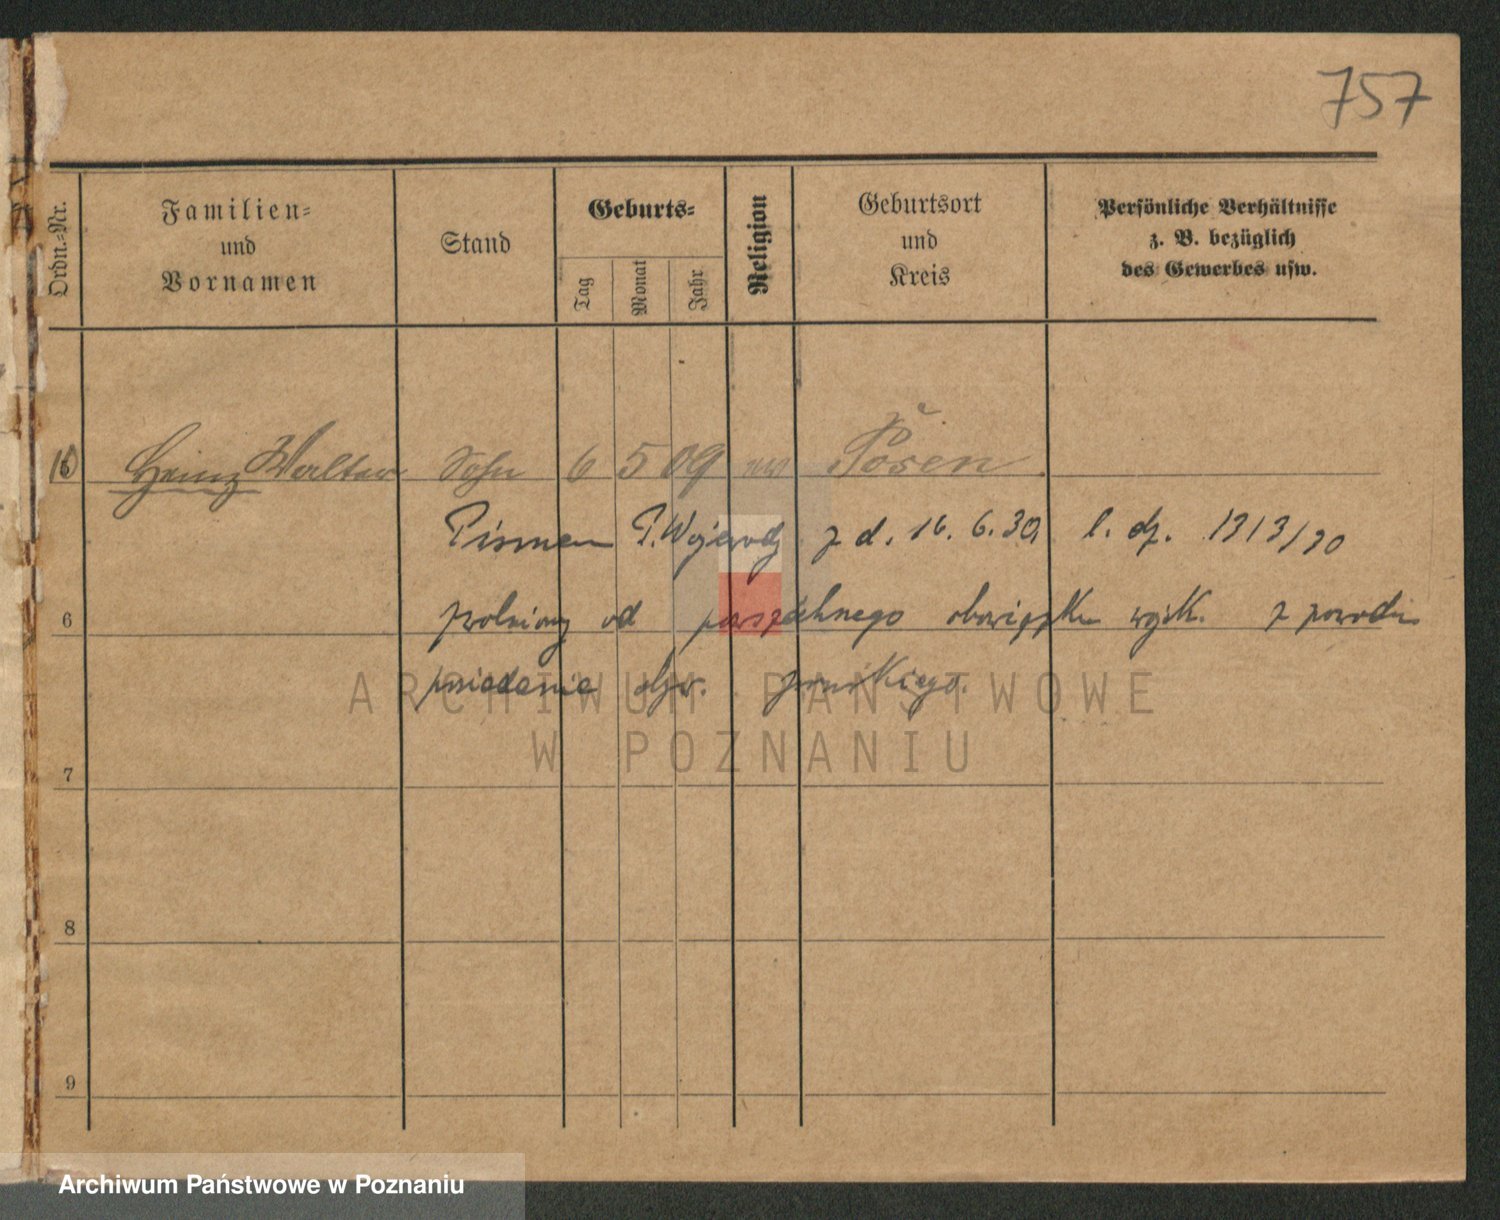 757
Ordn.-Nr.
Familien-
und
Vornamen
Stand
Geburts-
Tag
Monat
Jahr
Religion
Geburtsort
und
Kreis
Persönliche Verhältnisse
z. B. bezüglich
des Gewerbes usw.
Heinz Walter Sohn 6 5 09 ev Posen
Pismem P. Wojewody z d. 16. 6. 30, l. dz. 1313/30
6 zwolniony od powszechnego obowiązku wojsk. z powodu
posiadania obyw. pruskiego.
7
8
9
ARCHIWUM PAŃSTWOWE
W POZNANIU
Archiwum Państwowe w Poznaniu